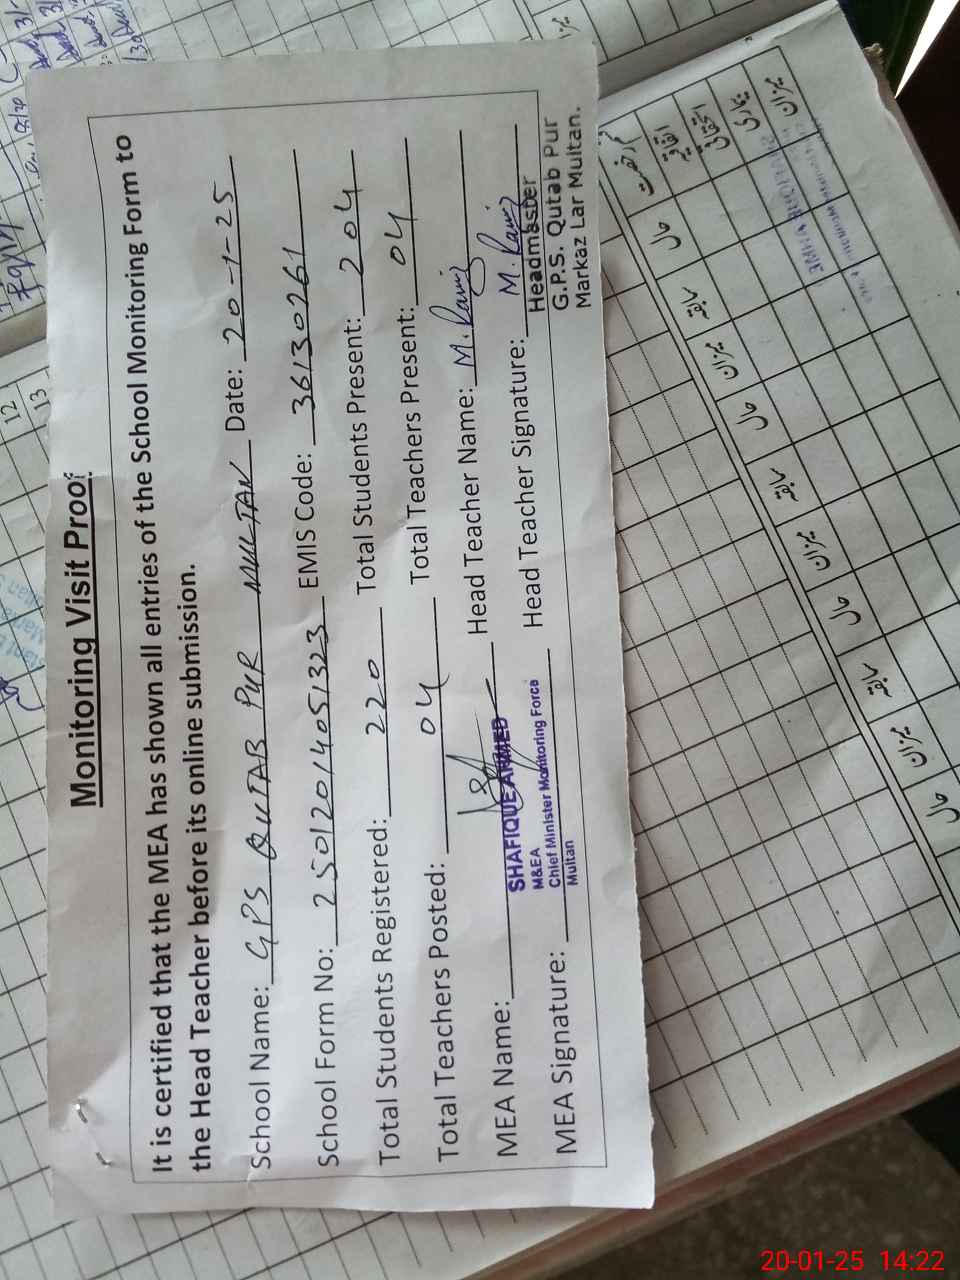 Monitoring Visit Proof
It is certified that the MEA has shown all entries of the School Monitoring Form to
the Head Teacher before its online submission.
School Name: GPS QUTAB PUR MULTAN Date: 20-1-25
School Form No: 25012014051323 EMIS Code: 36130261
Total Students Registered: 220 Total Students Present: 204
Total Teachers Posted: 04 Total Teachers Present: 04
MEA Name: Head Teacher Name: M. Ramiz
SHAFIQUE AHMED
M&EA
Chief Minister Monitoring Force
Multan
MEA Signature: Head Teacher Signature: M. Ramiz
Headmaster
G.P.S. Qutab Pur
Markaz Lar Multan.
12
13
میزان
حال
سابقہ
میزان
حال
سابقہ
میزان
حال
سابقہ
میزان
حال
20-01-25 14:22